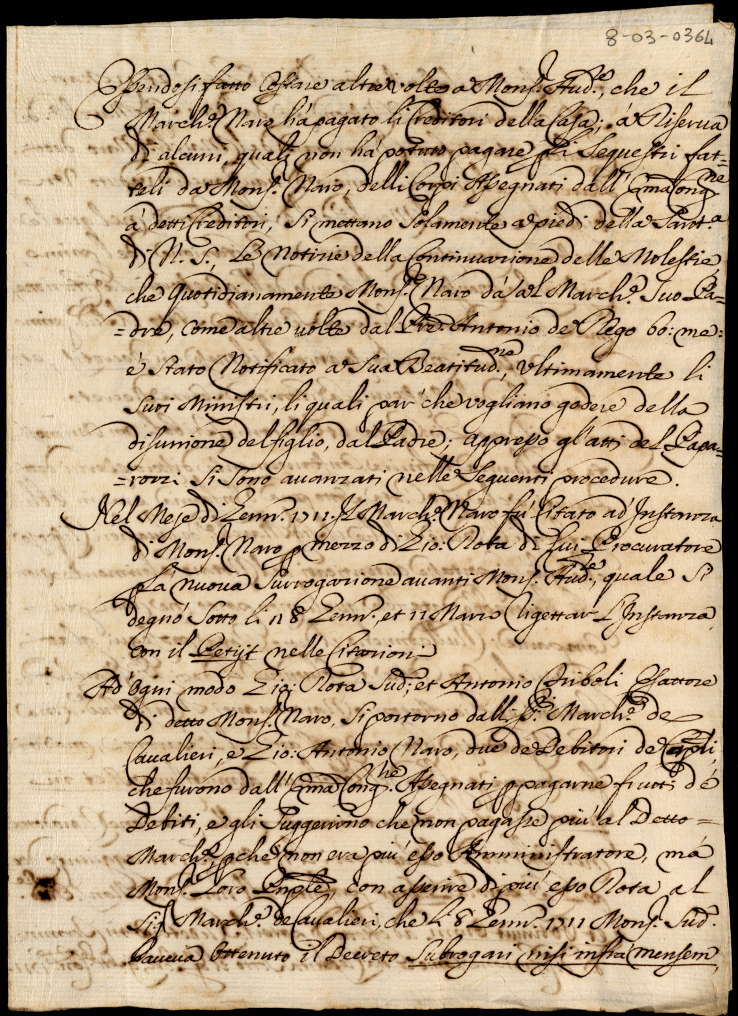 8-03-0364
Essendosi fatto Costare altre volte a Mons.r Aud.re, che il
March.e Naro hà pagato li Creditori della Casa, à Riserva
di alcuni, quali non hà potuto pagare p li Sequestri fat=
tali da Mons.r Naro, delli Corpi Assegnati dall' Em̃a Cong.ne
à detti Creditori, Si mettano Solamente a piedi della Sant.a
di N. S., Le Notizie della Continuazione delle Molestie,
che Quotidianamente Mons.r Naro dà al March.e Suo Pa=
=dre, Come altre volte dal Pre. Antonio de Rego bo: me:
è Stato Notificato a Sua Beatitud.ne, Ultimamente li
Suoi Ministri, li quali par' che vogliano godere della
disunione del figlio, dal Padre; appresso gl' atti del Papa=
=rozzi Si Sono avanzati nelle Sequenti procedure.
Nel Mese di Zenn.o 1711. Il March.e Naro fù Citato ad' Instanza
di Mons.r Naro p mezzo di Gio: Rota di lui Procuratore
p la nuova Surrogazione avanti Mons.r Aud.re, quale Si
degnò Sotto li 18 Zenn.o et 11 Marzo rigettar L'Instanza,
con il Petijt nelle Citazioni
Ad' Ogni modo Gio: Rota Sud.o et Antonio Criboli Esattore
di detto Mons.r Naro, Si portorno dalli SS.ri March.e de
Cavalieri, e Gio: Antonio Naro, due de Debitori de
che furono dall' Em̃a Cong.ne Assegnati p pagarne frutti de
Debiti, e gli Suggerirno che non pagasse più al Detto =
March.e, p che non era più esso Amministratore, mà
Mons.r Loro Pnple, con asserire di più esso Rota al
Sig.r March.e de Cavalieri, che li 8 Zenn.o 1711 Mons.r Sud.o
haveva Ottenuto il Decreto Subrogari nisi infrà mensem,